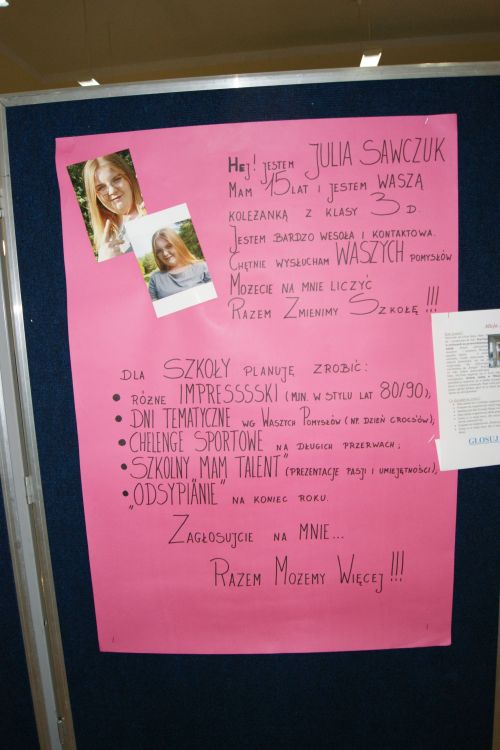 Hej! jestem JULIA SAWCZUK
Mam 15 lat i jestem WASZĄ
koleżanką z klasy 3 d.
Jestem bardzo wesoła i kontaktowa.
Chętnie wysłucham WASZYCH pomysłów
Mozecie na mnie liczyć
Razem Zmienimy Szkołę !!!
dla SZKOŁY planuję zrobić:
• różne IMPRESSSSKI (min. w stylu lat 80/90),
• DNI TEMATYCZNE wg Waszych Pomysłów (np. dzień croCs'ów),
• CHELENGE SPORTOWE na długich przerwach,
• SZKOLNY „MAM TALENT" (prezentacje pasji i umiejętności),
• „ODSYPIANIE" na koniec roku.
Zagłosujcie na MNIE...
Razem Mozemy Więcej !!!
GŁOSUJ